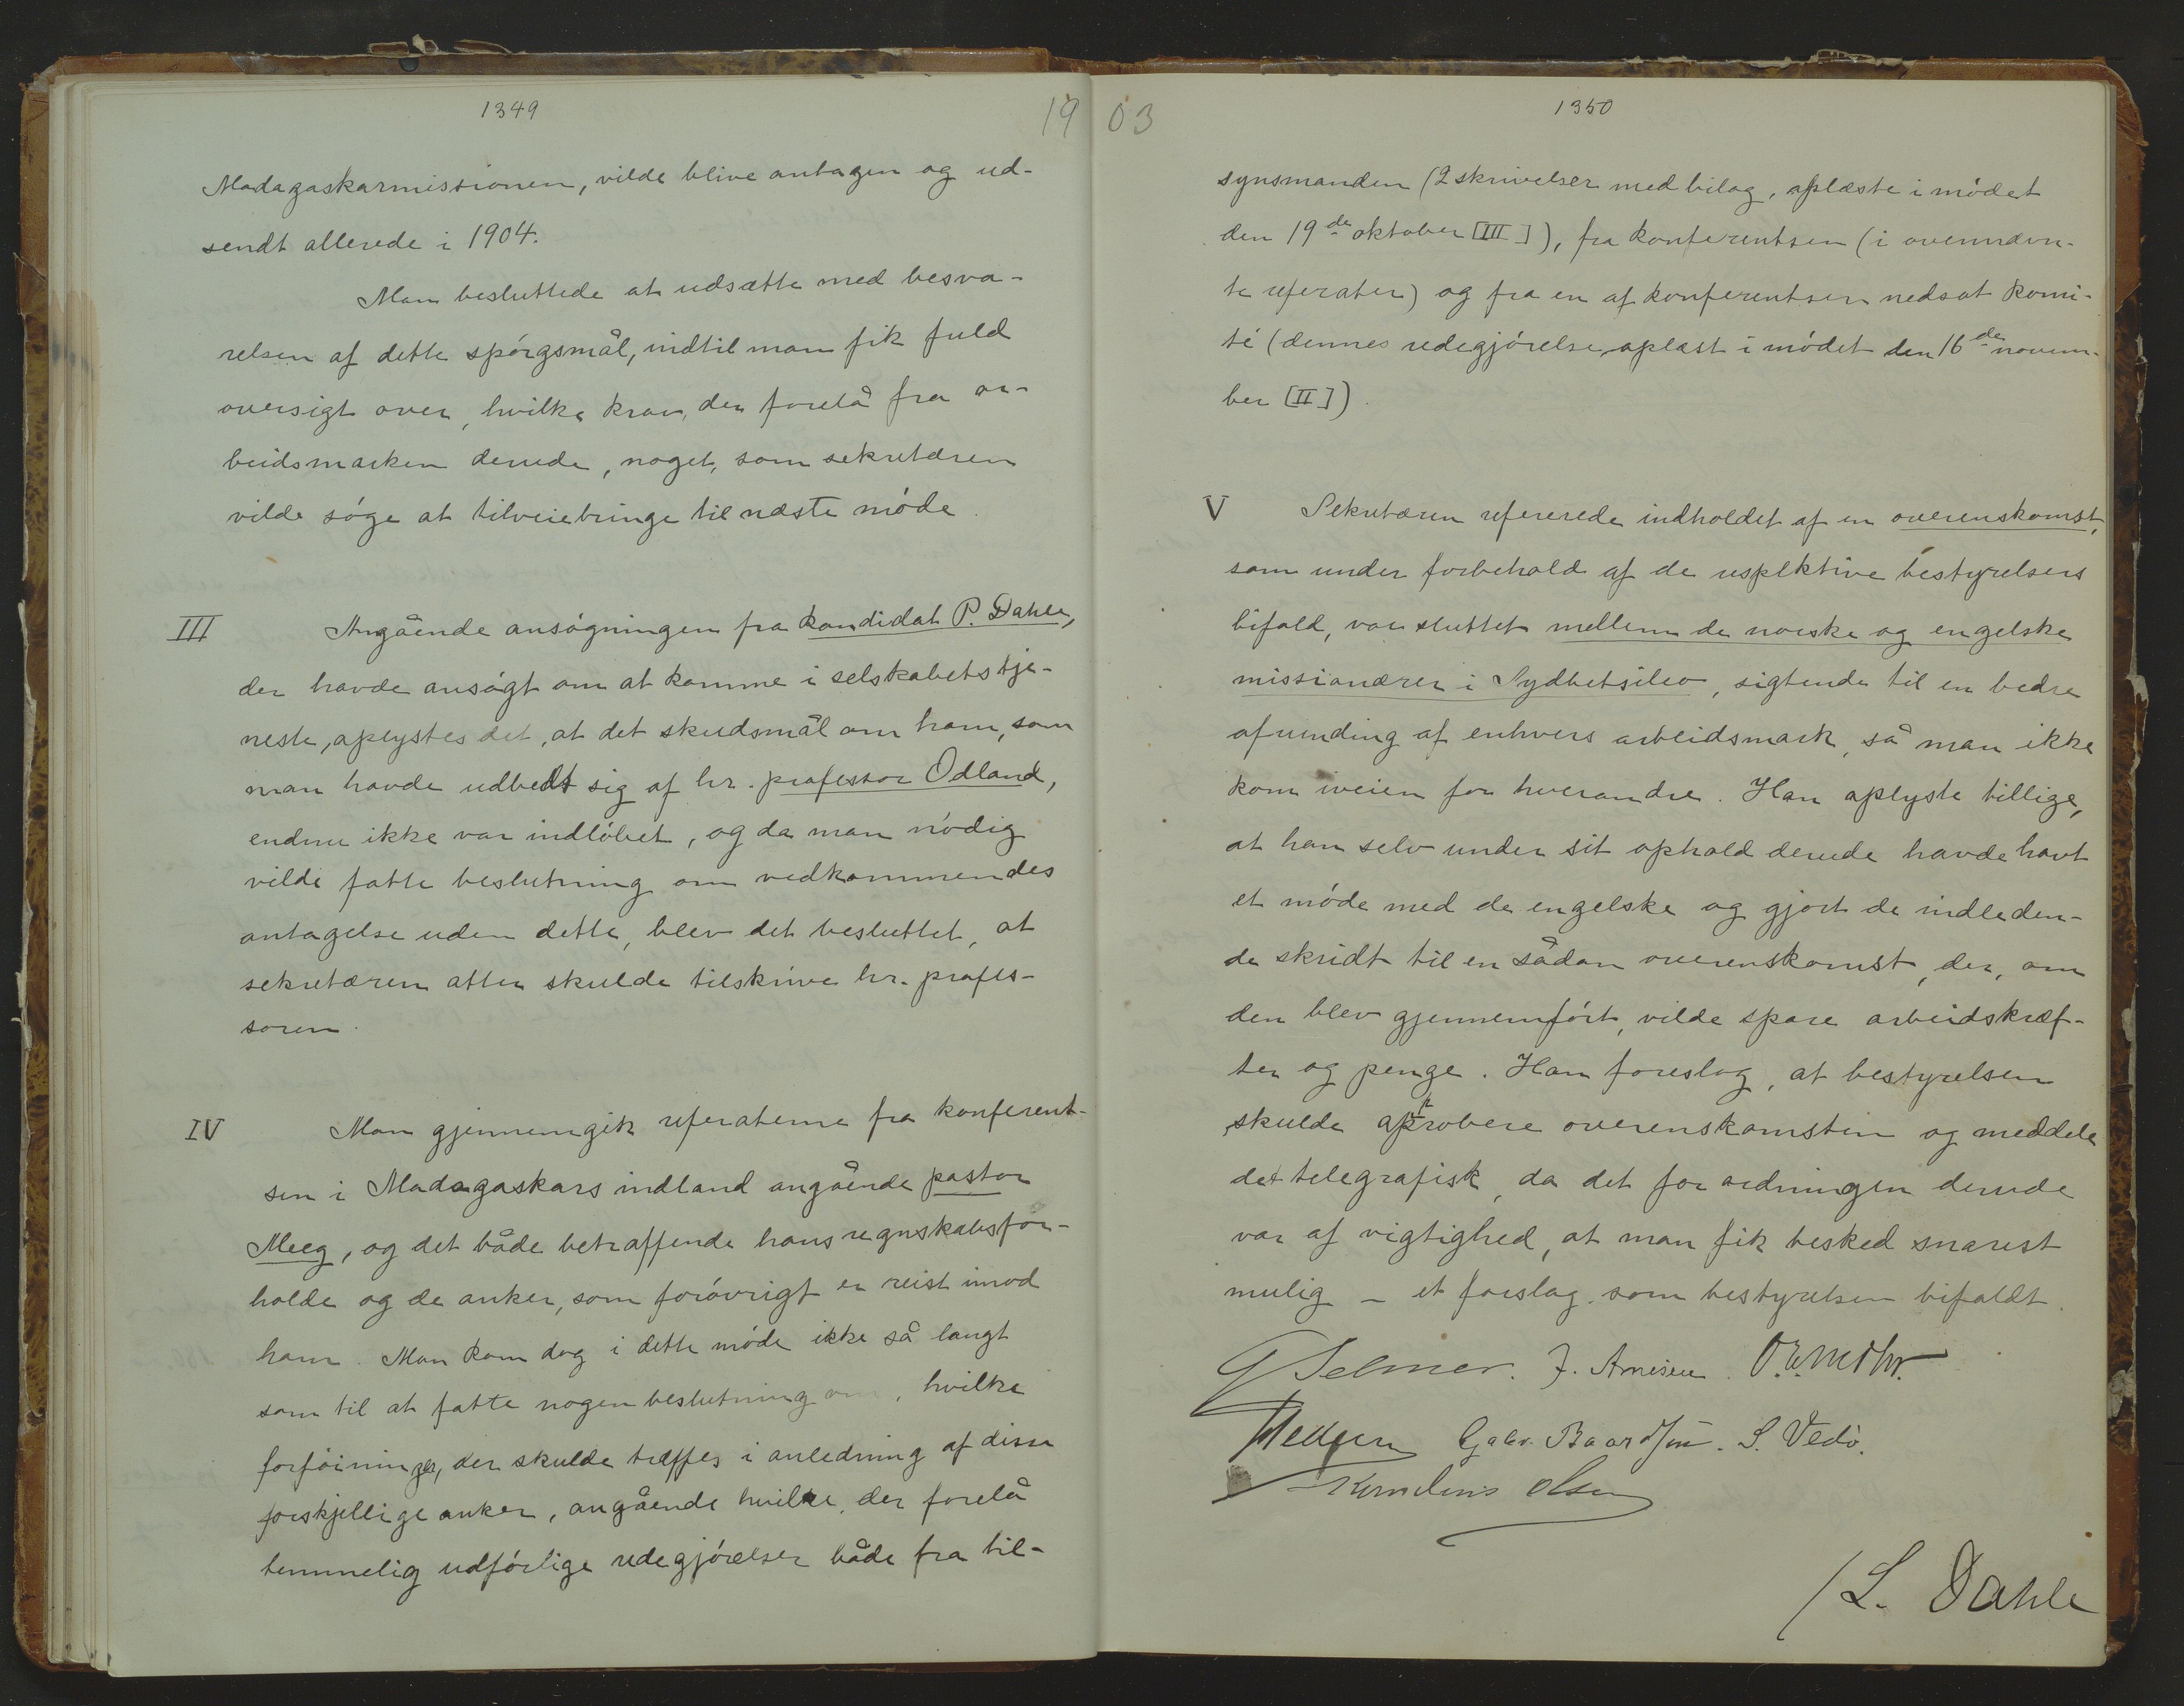 1349
19
Madagaskarmissionen, vilde blive antagen og ud-
sendt allerede i 1904.
Man besluttede at udsætte med besva-
relsen af dette spórgsmål, indtil man fik fuld
oversigt over, hvilke krav, der forelå fra ar-
beidsmarken derude, noget, som sekretæren
vilde sóge at tilveiebringe til næste móde.
III Angående ansógningen fra kandidat P. Dahle,
der havde ansógt om at komme i selskabets tje-
neste, oplystes det, at det skudsmål om ham, som
man havde udbedt sig af hr. professor Odland,
endnu ikke var indlóbet, og da man nódig
vilde fatte beslutning om vedkommendes
antagelse uden dette, blev det besluttet, at
sekretæren atter skulde tilskrive hr. profes-
soren.
IV Man gjennemgik referaterne fra konferent-
sen i Madagaskars indland angående pastor
Meeg, og det både betræffende hans regnskabsfor-
holde og de anker, som forövrigt er reist imod
ham. Man kom dog i dette móde ikke så langt
som til at fatte nogen beslutning om, hvilke
forfóininger, der skulde træffes i anledning af disse
forskjellige anker, angående hvilke, der forelå
temmelig udfórlige redegjórelser både fra til-
03
1350
synsmanden (2 skrivelser med bilag, oplæste i módet
den 19de oktober [III]), fra konferentsen (i ovennævn-
te referater) og fra en af konferentsen nedsat komi-
té (dennes redegjórelse oplæst i módet den 16de novem-
ber [II]).
V Sekretæren refererede indholdet af en overenskomst,
som under forbehold af de respektive bestyrelsers
bifald, var sluttet mellem de norske og engelske
missionærer i Sydbetsileo, sigtende til en bedre
afrunding af enhvers arbeidsmark, så man ikke
kom iveien for hverandre. Han oplyste tillige,
at han selv under sit ophold derude havde havt
et móde med de engelske og gjort de indleden-
de skridt til en sådan overenskomst, der, om
den blev gjennemfórt, vilde spare arbeidskræf-
ter og penge. Han foreslog, at bestyrelsen
skulde approbere overenskomsten og meddele
det telegrafisk, da det for ordningen derude
var af vigtighed, at man fik besked snarest
mulig – et forslag som bestyrelsen bifaldt.
G Selmer. J. Arnesen. O. E. Mohr.
Gabr. Baardsen. S. Vedö.
Kornelius Olsen
/ L. Dahle